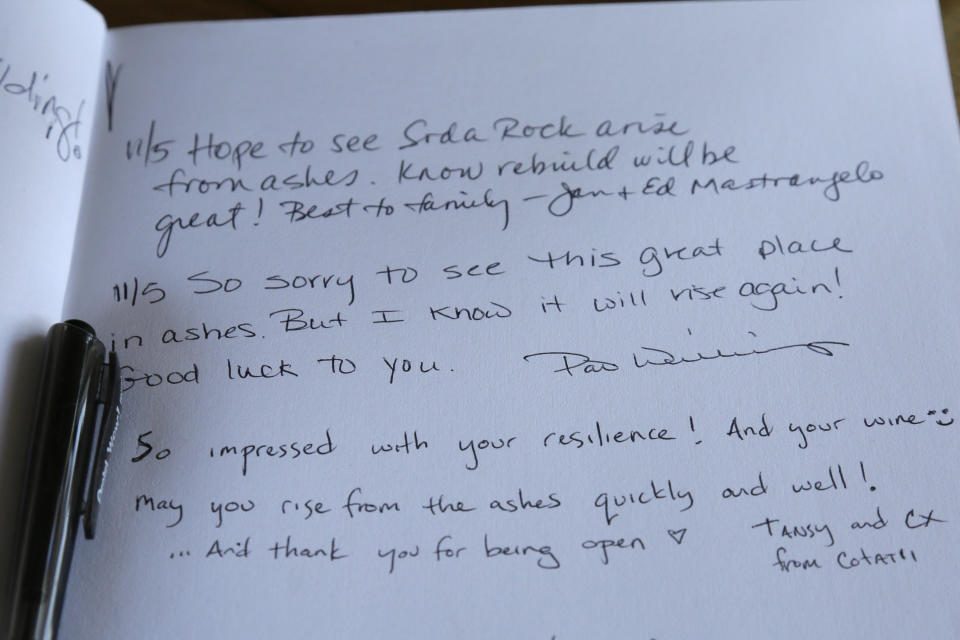 11/5 Hope to see Soda Rock arise
from ashes. Know rebuild will be
great! Best to family – Jan + Ed Mastrangelo
11/5 So sorry to see this great place
in ashes. But I know it will rise again!
Good luck to you.
So impressed with your resilience! And your wine :)
may you rise from the ashes quickly and well!
... And thank you for being open ♡
TANSY and CX
from COTATI